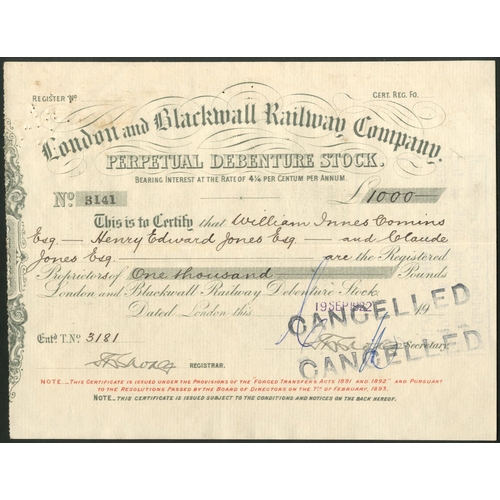 REGISTER Nº CERT. REG. FO.
London and Blackwall Railway Company.
PERPETUAL DEBENTURE STOCK.
BEARING INTEREST AT THE RATE OF 4¼ PER CENTUM PER ANNUM.
Nº 3141 £1000
This is to Certify that William Innes Comins
Esq. — Henry Edward Jones Esq — and Claude
Jones Esq. — are the Registered
Proprietors of One thousand Pounds
London and Blackwall Railway Debenture Stock.
Dated London this 19 SEP 1922 19
CANCELLED
Entd. T. Nº 3181
Secretary.
CANCELLED
REGISTRAR.
NOTE.—THIS CERTIFICATE IS ISSUED UNDER THE PROVISIONS OF THE "FORGED TRANSFERS ACTS 1891 AND 1892" AND PURSUANT
TO THE RESOLUTIONS PASSED BY THE BOARD OF DIRECTORS ON THE 7TH OF FEBRUARY, 1893.
NOTE.—THIS CERTIFICATE IS ISSUED SUBJECT TO THE CONDITIONS AND NOTICES ON THE BACK HEREOF.